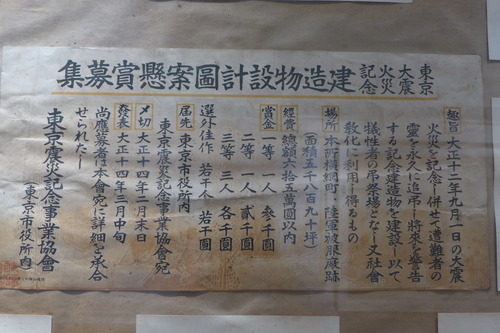 東京
大震
火災
記念
建造物設計圖案懸賞募集
趣旨 大正十二年九月一日の大震
火災を記念し併せて遭難者の
靈を永久に追弔し將來を警告
する記念建造物を建設し以て
犠牲者の弔祭場となし又社會
敎化に利用し得るもの
場所 本所横網町陸軍被服廠跡
(面積五千八百九十坪)
經費 總額六拾五萬圓以内
賞金 一等 一人 參千圓
二等 一人 貳千圓
三等 三人 各千圓
選外佳作 若干人 若干圓
届先 東京市役所内
東京震災記念事業協會宛
〆切 大正十四年二月末日
發表 大正十四年三月中旬
尚應募者は本會宛に詳細を承合
せられたし
東京震災記念事業協會
(東京市役所内)